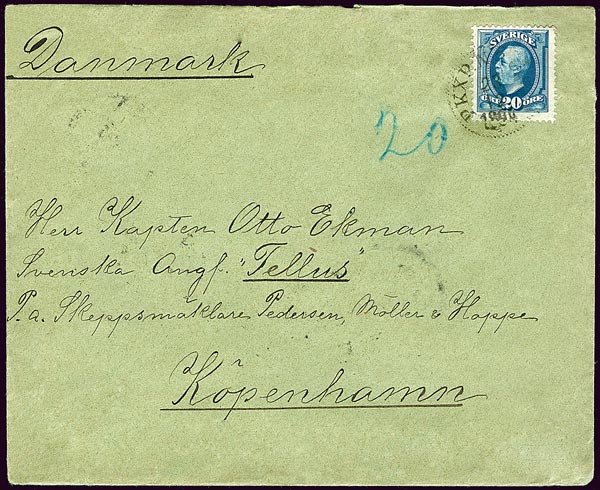 Danmark
SVERIGE
ÖRE 20 ÖRE
PKXP
20
Herr Kapten Otto Ekman
Svenska Ångf. "Tellus"
P. a. Skeppsmäklare Pedersen, Möller & Hoppe
Köpenhamn